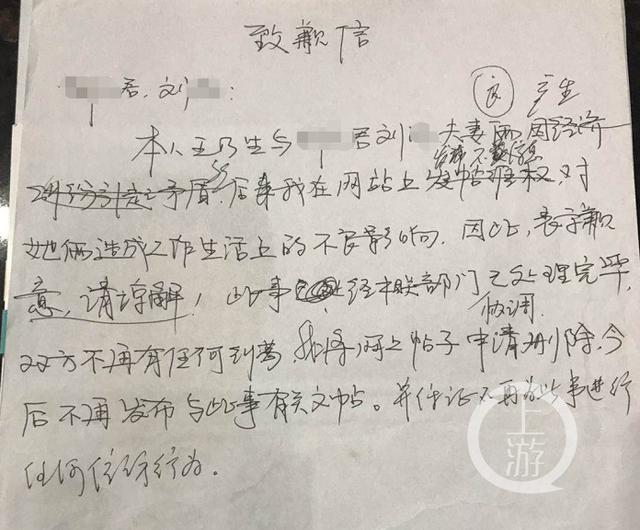 致歉信
君、刘 :
良 产生
本人王乃生与 君刘 夫妻俩因经济
发帖不
矛盾,后来我在网站上发帖维权,对
她俩造成工作生活上的不良影响。因此,表示歉
意,请谅解!此事 经相关部门已处理完毕,
协调
双方不再有任何纠葛,我将网上帖子申请删除,今
后不再发布与此事有关文帖。并保证不再为此事进行
任何 行为。
上游